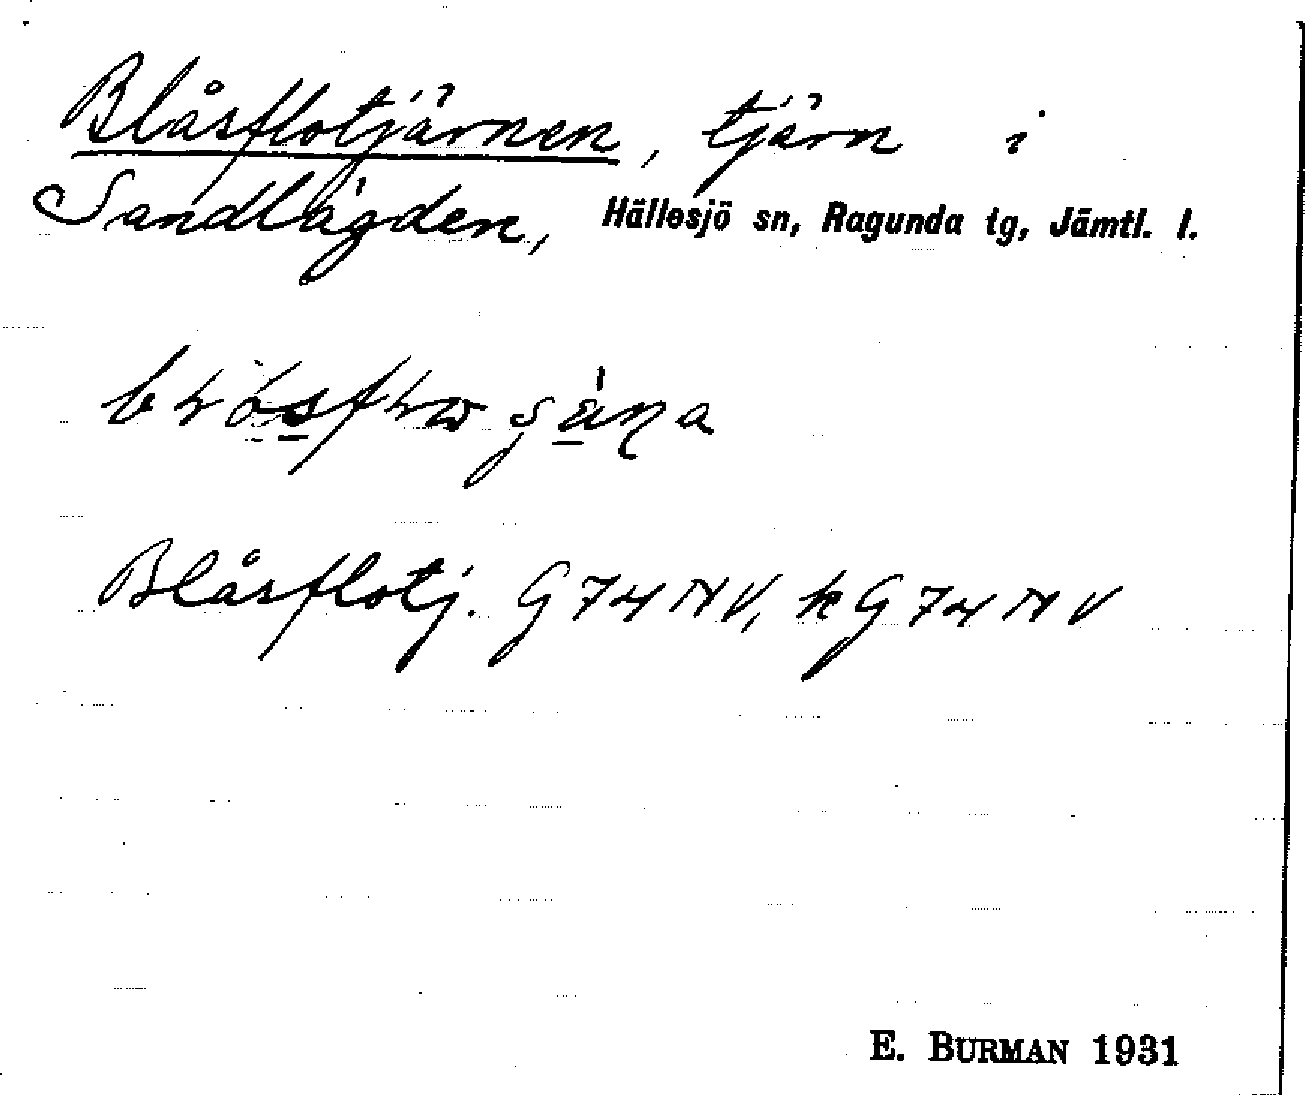 Blåsflotjärnen, tjärn i
Sandlägden, Hällesjö sn, Ragunda tg, Jämtl. l.
Blåsflotj. G74NV, kG74NV
E. BURMAN 1931